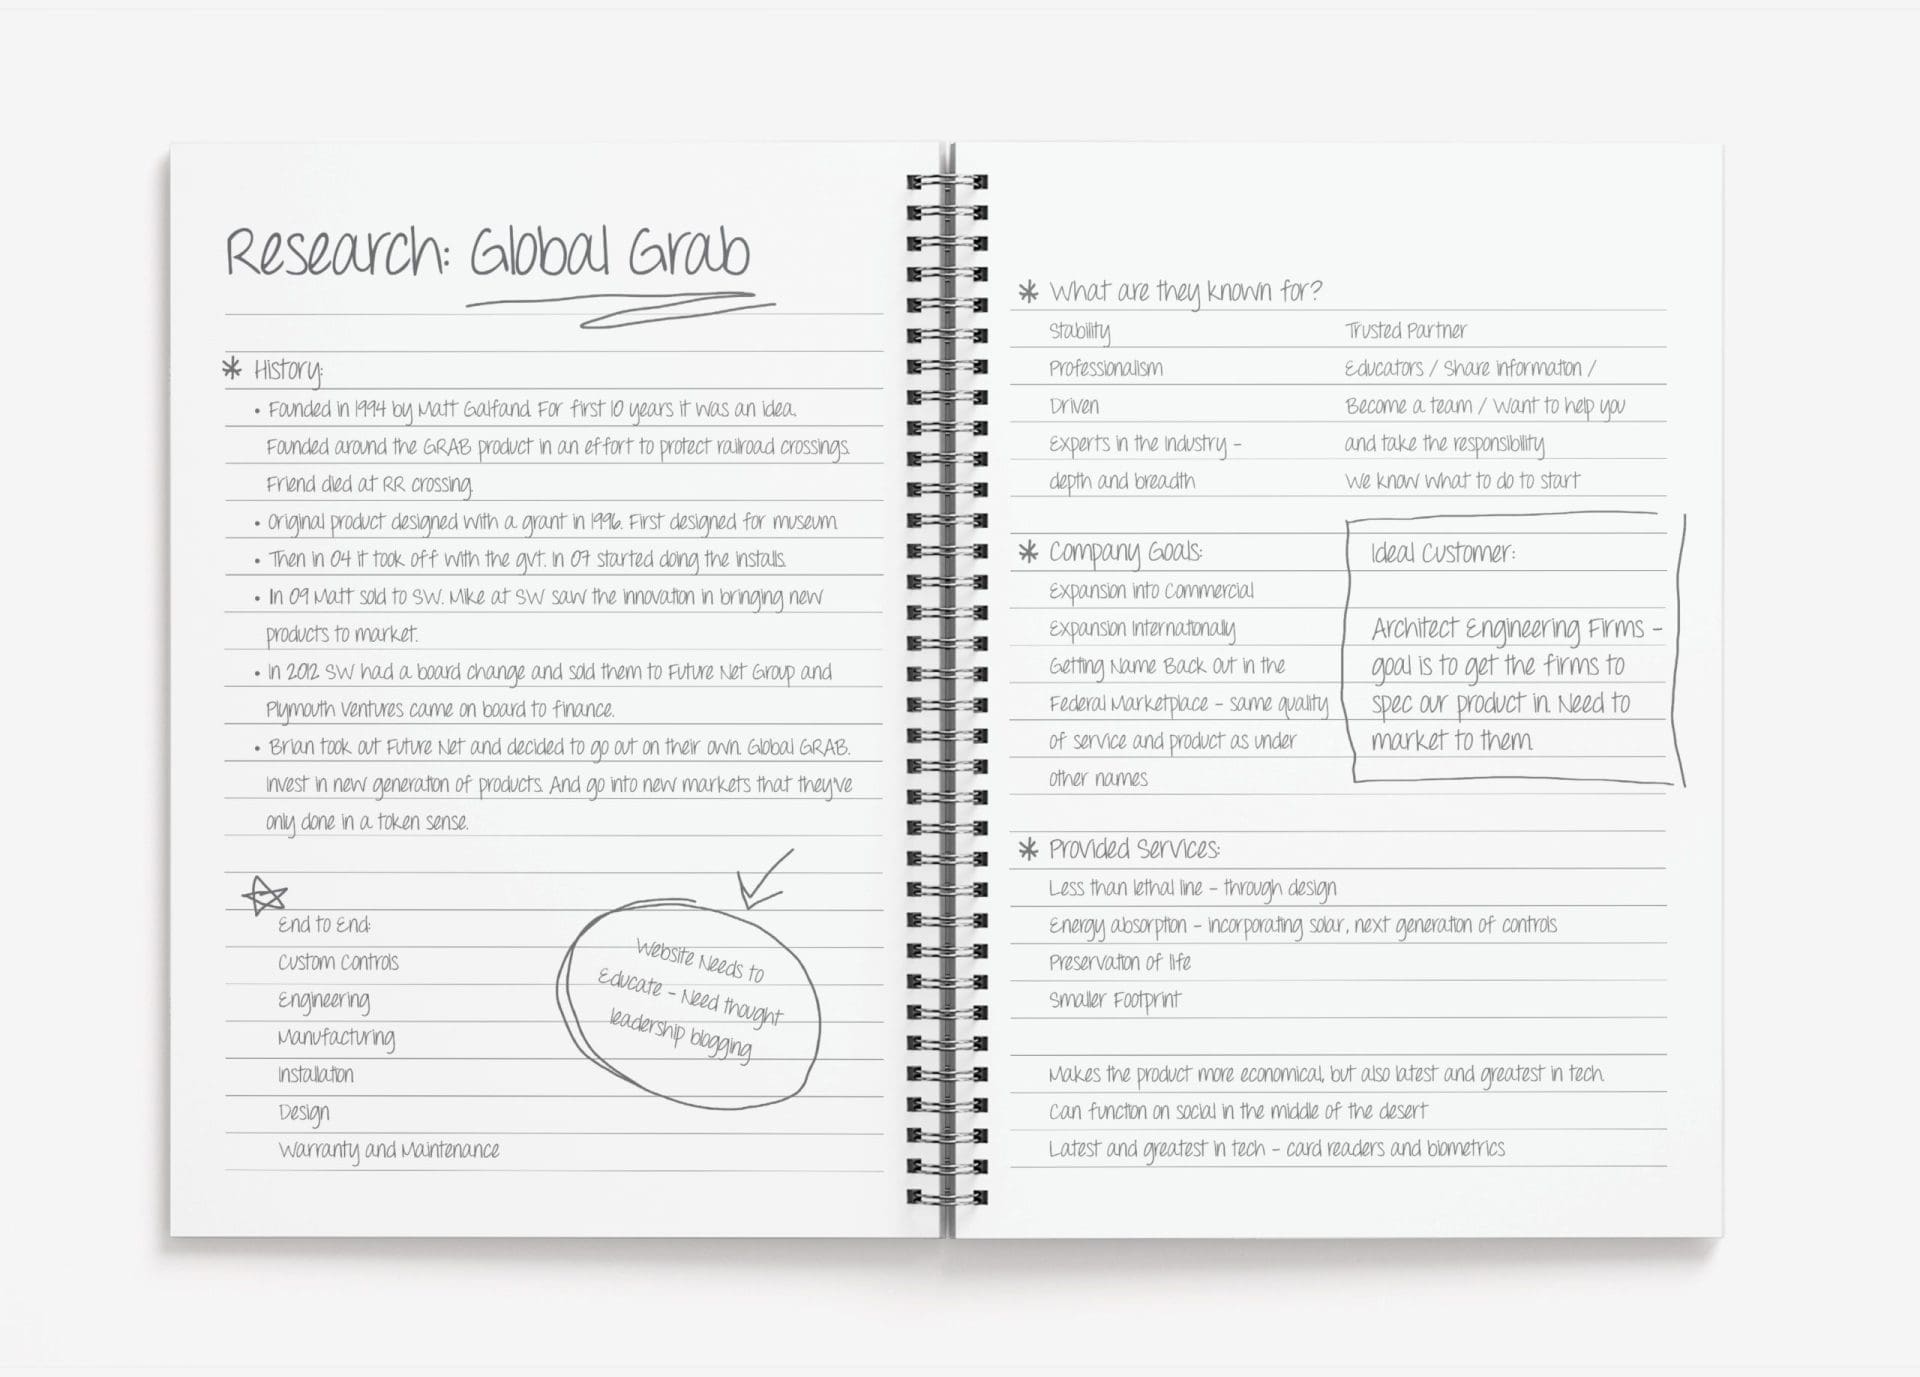 Research: Global Grab
* History:
• Founded in 1994 by Matt Galfand. For first 10 years it was an idea.
Founded around the GRAB product in an effort to protect railroad crossings.
Friend died at RR crossing.
• Original product designed with a grant in 1996. First designed for museum.
• Then in 04 it took off with the gvt. in 07 started doing the installs.
• In 09 Matt sold to SW. Mike at SW saw the innovation in bringing new
products to market.
• In 2012 SW had a board change and sold them to Future Net Group and
Plymouth Ventures came on board to finance.
• Brian took out Future Net and decided to go out on their own. Global GRAB.
Invest in new generation of products. And go into new markets that they've
only done in a token sense.
End to End:
Custom Controls
Engineering
Manufacturing
Installation
Design
Warranty and Maintenance
Website Needs to
Educate - Need thought
leadership blogging
* What are they known for?
Stability
Professionalism
Driven
Experts in the Industry -
depth and breadth
Trusted Partner
Educators / Share information /
Become a team / Want to help you
and take the responsibility
We know what to do to start
* Company Goals:
Expansion into Commercial
Expansion Internationally
Getting Name Back Out in the
Federal Marketplace - same quality
of service and product as under
other names
Ideal Customer:
Architect Engineering Firms -
goal is to get the firms to
spec our product in. Need to
market to them.
* Provided Services:
Less than lethal line - through design
Energy absorption - incorporating solar, next generation of controls
Preservation of life
Smaller Footprint
Makes the product more economical, but also latest and greatest in tech.
Can function on social in the middle of the desert
Latest and greatest in tech - card readers and biometrics